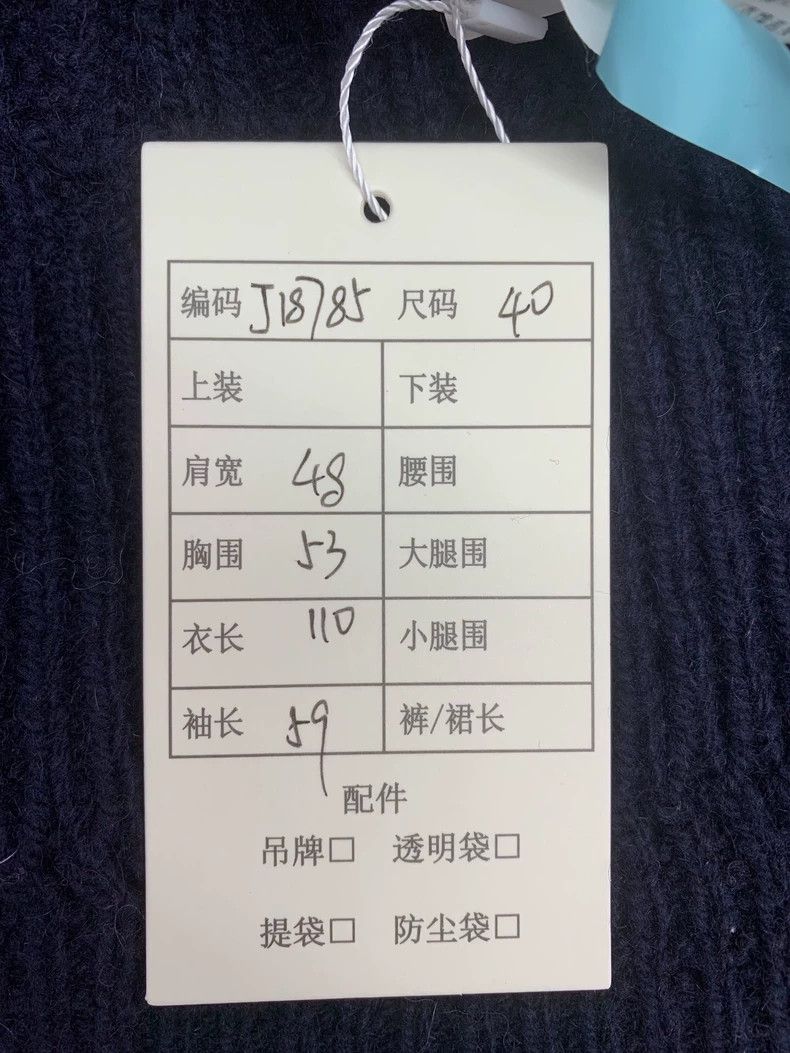 编码 J18785 尺码 40
上装 下装
肩宽 48 腰围
胸围 53 大腿围
衣长 110 小腿围
袖长 59 裤/裙长
配件
吊牌□ 透明袋□
提袋□ 防尘袋□